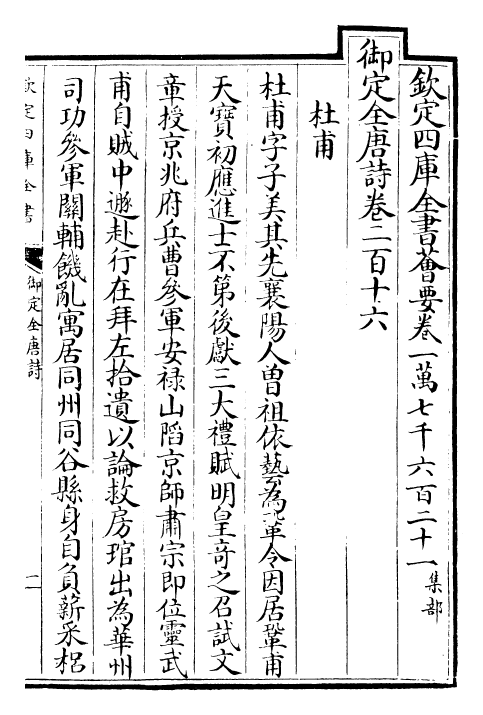 欽定四庫全書薈要卷一萬七千六百二十一 集部
御定全唐詩卷二百十六
杜甫
杜甫字子美其先襄陽人曾祖依藝為鞏令因居鞏甫
天寶初應進士不第後獻三大禮賦明皇竒之召試文
章授京兆府兵曹參軍安禄山陷京師肅宗即位靈武
甫自賊中遯赴行在拜左拾遺以論救房琯出為華州
司功參軍關輔饑亂寓居同州同谷縣身自負薪采梠
欽定四庫全書
御定全唐詩
一